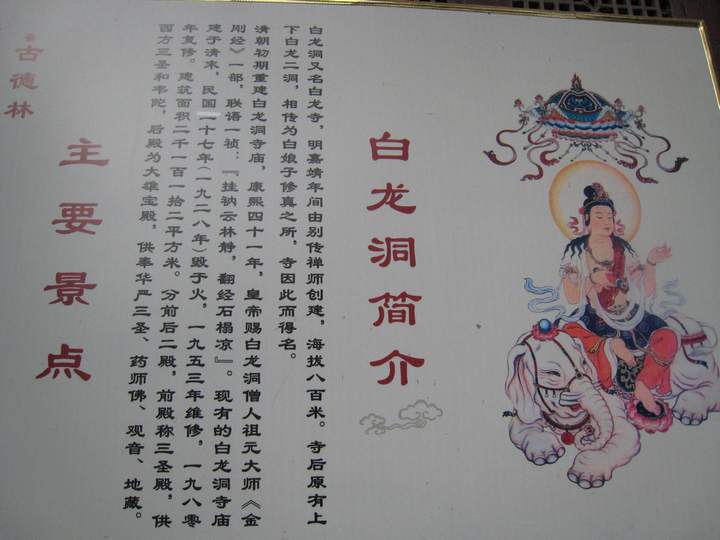 白龙洞简介
白龙洞又名白龙寺，明嘉靖年间由别传禅师创建，海拔八百米。寺后原有上
下白龙二洞，相传为白娘子修真之所，寺因此而得名。
清朝初期重建白龙洞寺庙，康熙四十一年，皇帝赐白龙洞僧人祖元大师《金
刚经》一部，联语一祯：『挂衲云林静，翻经石榻凉』。现有的白龙洞寺庙
建于清末，民国一十七年（一九二八年）毁于火，一九五三年维修，一九八零
年复修。建筑面积二千一百一拾二平方米。分前后二殿，前殿称三圣殿，供
西方三圣和韦陀，后殿为大雄宝殿，供奉华严三圣、药师佛、观音、地藏。
主要景点
古德林